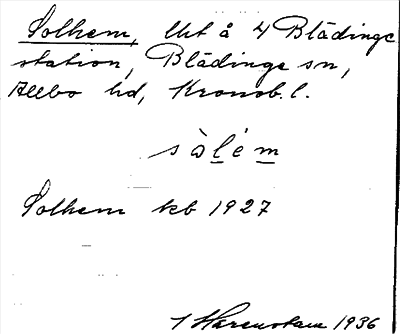 Solhem, lht å 4 Blädinge
station, Blädinge sn,
Allbo hd, Kronob. l.
sòlém
Solhem kb 1927
1936